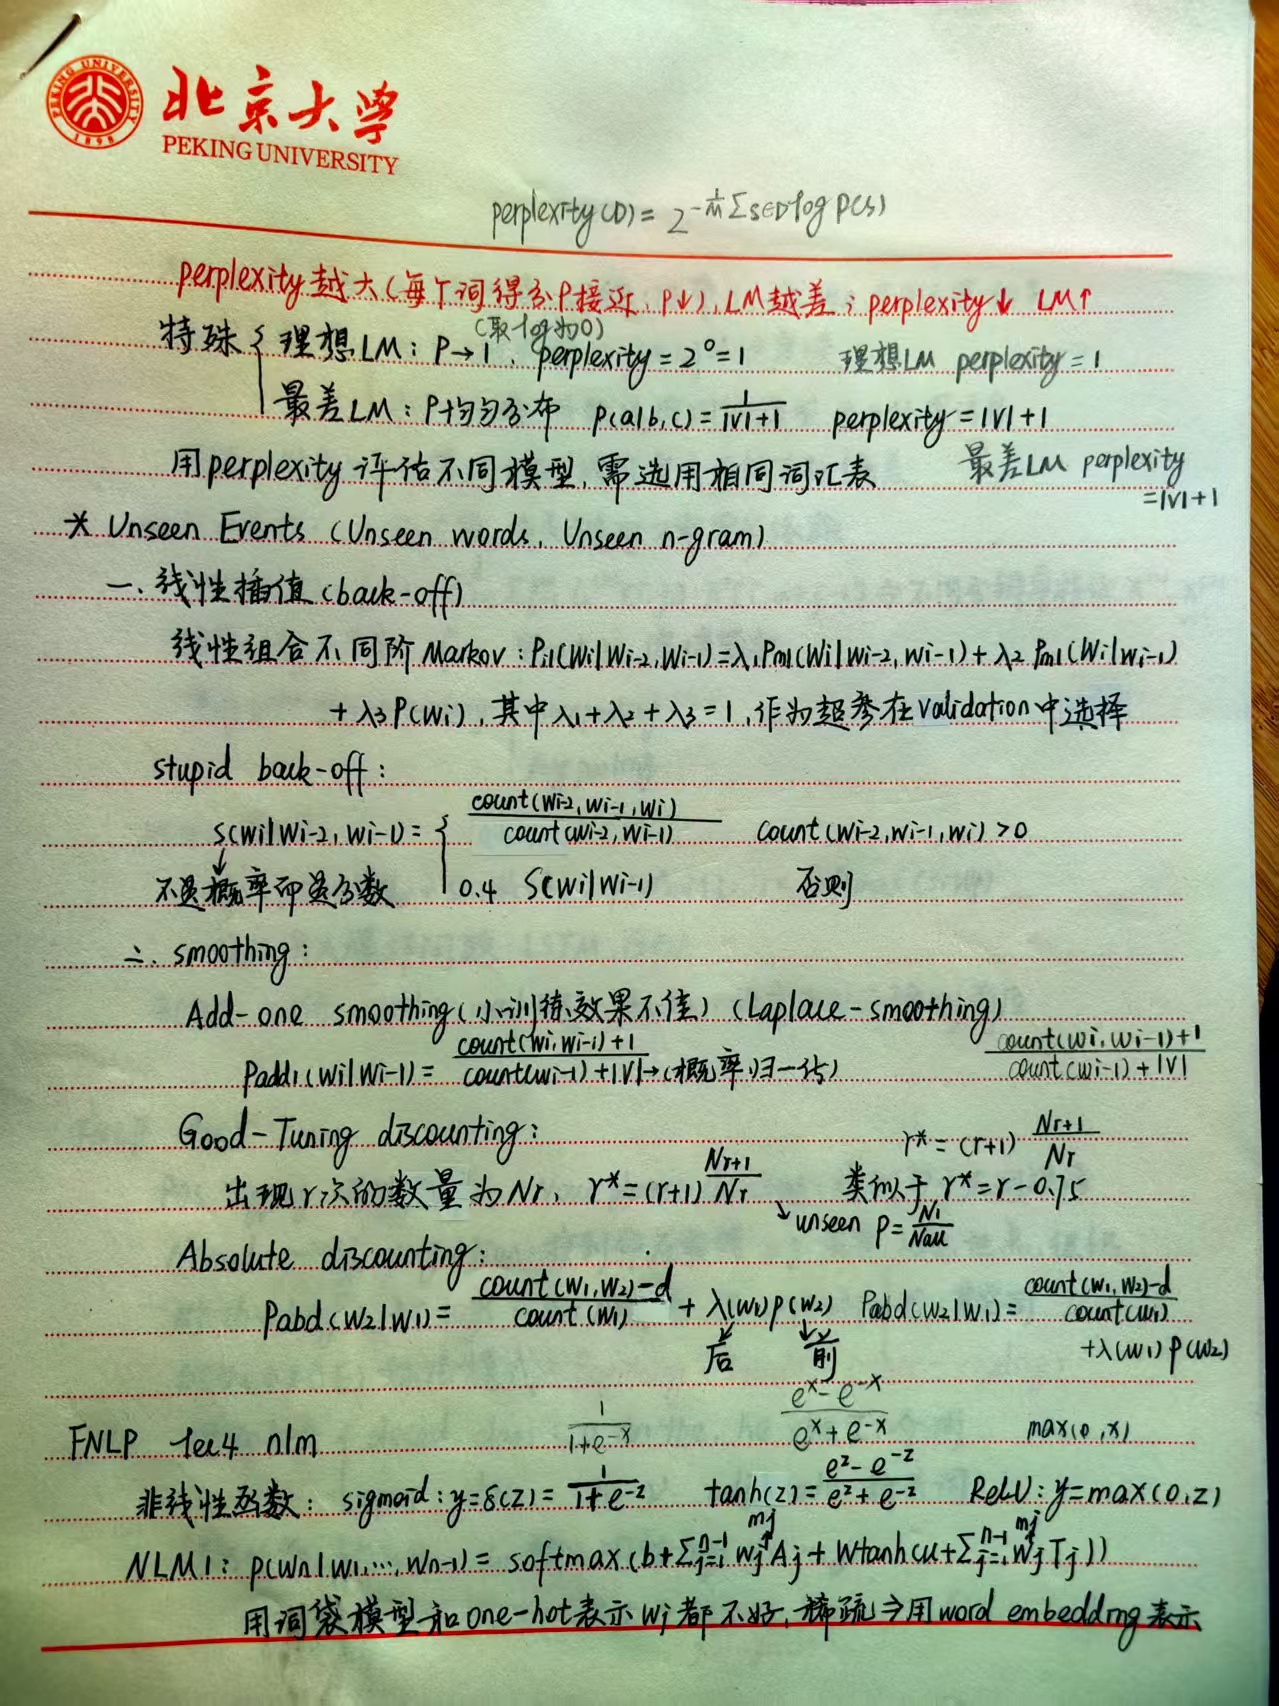 PEKING UNIVERSITY 1898
北京大学
PEKING UNIVERSITY
perplexity(D) = 2^{-1/M ΣS∈D log P(s)}
perplexity越大(每个词得分P接近,P↓),LM越差;perplexity↓ LM↑
(取log为0)
特殊 { 理想LM: P→1, perplexity = 2^0 = 1 理想LM perplexity = 1
最差LM: P均匀分布 P(a|b,c) = 1/(|V|+1) perplexity = |V|+1
用perplexity评估不同模型,需选用相同词汇表 最差LM perplexity
= |V|+1
* Unseen Events (Unseen words, Unseen n-gram)
一. 线性插值 (back-off)
线性组合不同阶Markov: Pil(wi|wi-2,wi-1) = λ1Pml(wi|wi-2,wi-1) + λ2 Pml(wi|wi-1)
+ λ3 P(wi), 其中λ1+λ2+λ3=1,作为超参在validation中选择
stupid back-off:
S(wi|wi-2,wi-1) = { count(wi-2,wi-1,wi)/count(wi-2,wi-1) count(wi-2,wi-1,wi) > 0
不是概率而是分数 0.4 S(wi|wi-1) 否则
二. smoothing:
Add-one smoothing(小训练效果不佳) (Laplace-smoothing)
Padd1(wi|wi-1) = (count(wi,wi-1)+1)/(count(wi-1)+|V|) →(概率归一化) (count(wi,wi-1)+1)/(count(wi-1)+|V|)
Good-Tuning discounting: r* = (r+1) Nr+1/Nr
出现r次的数量为Nr, r* = (r+1) Nr+1/Nr 类似于 r* = r-0.75
↘ unseen p = N1/Nall
Absolute discounting:
Pabd(w2|w1) = (count(w1,w2)-d)/count(w1) + λ(w1)p(w2) Pabd(w2|w1) = (count(w1,w2)-d)/count(w1)
后 前 +λ(w1) p(w2)
FNLP lec4 nlm 1/(1+e^-x) (e^x - e^-x)/(e^x + e^-x) max(0,x)
非线性函数: sigmoid: y=δ(z) = 1/(1+e^-z) tanh(z) = (e^z - e^-z)/(e^z + e^-z) ReLU: y=max(0,z)
mj mj
NLM1: p(wn|w1,…,wn-1) = softmax(b+Σ_{j=1}^{n-1} wj Aj + Wtanh(u+Σ_{j=1}^{n-1} wj Tj))
用词袋模型和one-hot表示wj都不好,稀疏⇒用word embedding表示